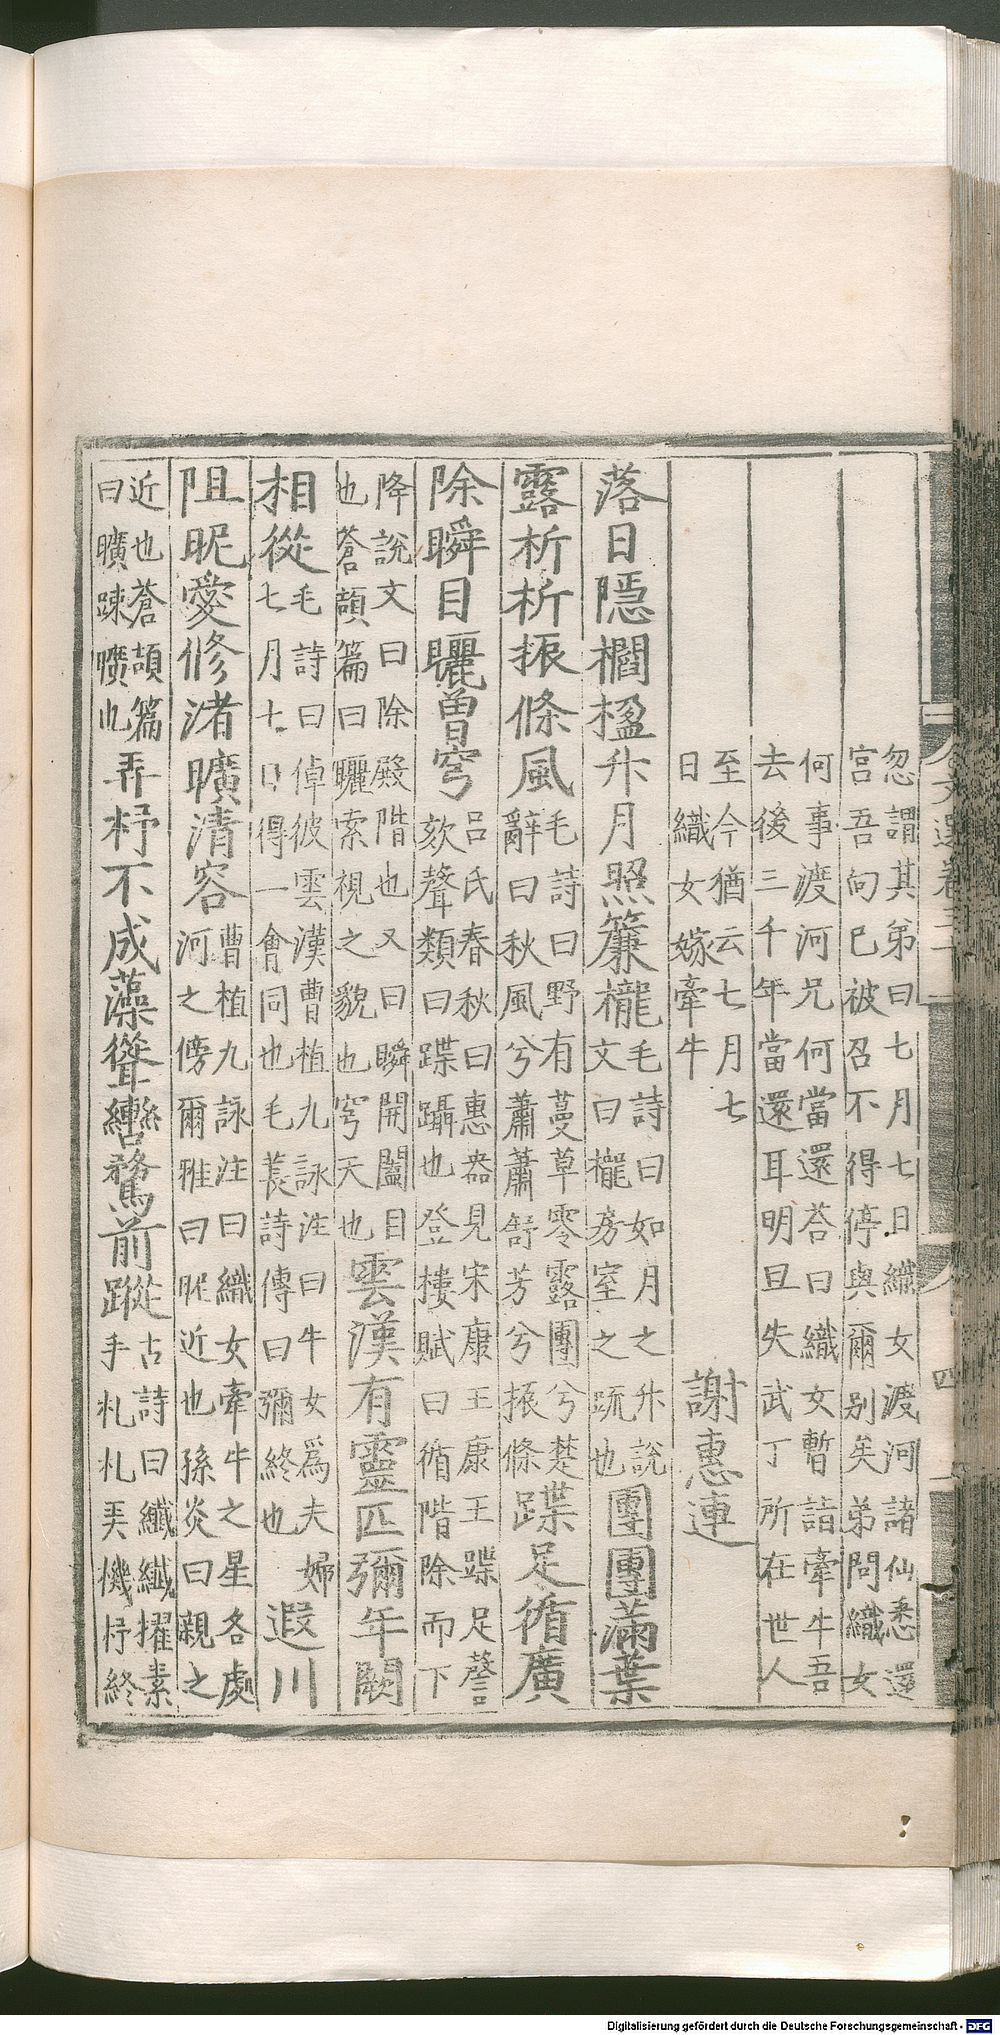 忽謂其弟曰七月七日織女渡河諸仙悉還
宮吾向已被召不得停與爾别矣弟問織女
何事渡河兄何當還荅曰織女暫詣牽牛吾
去後三千年當還耳明旦失武丁所在世人
至今猶云七月七
日織女嫁牽牛
謝惠連
落日隱櫩楹升月照簾櫳
毛詩曰如月之升說
文曰櫳房室之䟽也
團團滿葉
露析析振條風
毛詩曰野有蔓草零露團兮楚
辭曰秋風兮蕭蕭舒芳兮振條
蹀足循廣
除瞬目曬曾穹
呂氏春秋曰惠盎見宋康王康王蹀足謦
欬聲類曰蹀躡也登樓賦曰循階除而下
降說文曰除殿階也又曰瞬開闔目
也蒼頡篇曰曬索視之貌也穹天也
雲漢有靈匹彌年闕
相從
毛詩曰倬彼雲漢曹植九詠注曰牛女爲夫婦
七月七日得一會同也毛萇詩傳曰彌終也
遐川
阻昵愛修渚曠清容
曹植九詠注曰織女牽牛之星各處
河之傍爾雅曰昵近也孫炎曰親之
近也蒼頡篇
曰曠踈曠也
弄杼不成藻聳轡騖前蹤
古詩曰纖纖擢素
手札札弄機杼終
文選卷三十
四
Digitalisierung gefördert durch die Deutsche Forschungsgemeinschaft - DFG